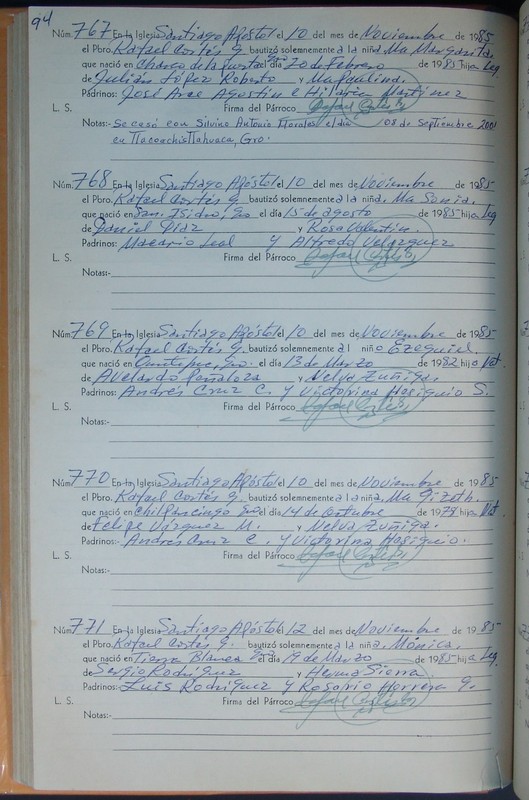 94
Núm. 767 En la Iglesia Santiago Apóstol el 10 del mes de Noviembre de 1985
el Pbro. Rafael Cortés G. bautizó solemnemente a la niña Ma Margarita.
que nació en Charco de la Puerta el día 20 de Febrero de 1985 hija Leg.
de Julián López Roberto y Ma Paulina.
Padrinos: José Arce Agustín e Hilaria Martínez
L. S. Firma del Párroco Rafael Cortés G.
Notas:- Se casó con Silvino Antonio Morales el día 08 de Septiembre 2001
en Tlacoachistlahuaca, Gro.
Núm. 768 En la Iglesia Santiago Apóstol el 10 del mes de Noviembre de 1985
el Pbro. Rafael Cortés G. bautizó solemnemente a la niña. Ma Sonia.
que nació en San Isidro, Gro el día 15 de agosto de 1985 hija Leg
de Daniel Díaz y Rosa Valentín.
Padrinos: Macario Leal y Alfredo Velazquez
L. S. Firma del Párroco Rafael Cortés G.
Notas:-
Núm. 769 En la Iglesia Santiago Apóstol el 10 del mes de Noviembre de 1985
el Pbro. Rafael Cortés G. bautizó solemnemente a l niño Ezequiel.
que nació en Ometepec, Gro. el día 13 de Marzo de 1982 hijo Nat.
de Avelardo Peñaloza y Nelva Zuñiga.
Padrinos: Andrés Cruz C. y Victorina S.
L. S. Firma del Párroco Rafael Cortés G.
Notas:-
Núm. 770 En la Iglesia Santiago Apóstol el 10 del mes de Noviembre de 1985
el Pbro. Rafael Cortés G. bautizó solemnemente a la niña, Ma Gizeth.
que nació en Chilpancingo Gro el día 14 de Octubre de 1979 hija Nat.
de Felipe Vázquez M. y Nelva Zuñiga.
Padrinos:- Andrés Cruz C. y Victorina
L. S. Firma del Párroco Rafael Cortés G.
Notas:-
Núm. 771 En la Iglesia Santiago Apóstol el 12 del mes de Noviembre de 1985
el Pbro. Rafael Cortés G. bautizó solemnemente a la niña. Mónica.
que nació en Tierra Blanca Gro el día 19 de Marzo de 1985 hija Leg.
de Sergio Rodríguez y Herma Sierra
Padrinos: Luis Rodríguez y Rosario Herrera G.
L. S. Firma del Párroco Rafael Cortés G.
Notas:-